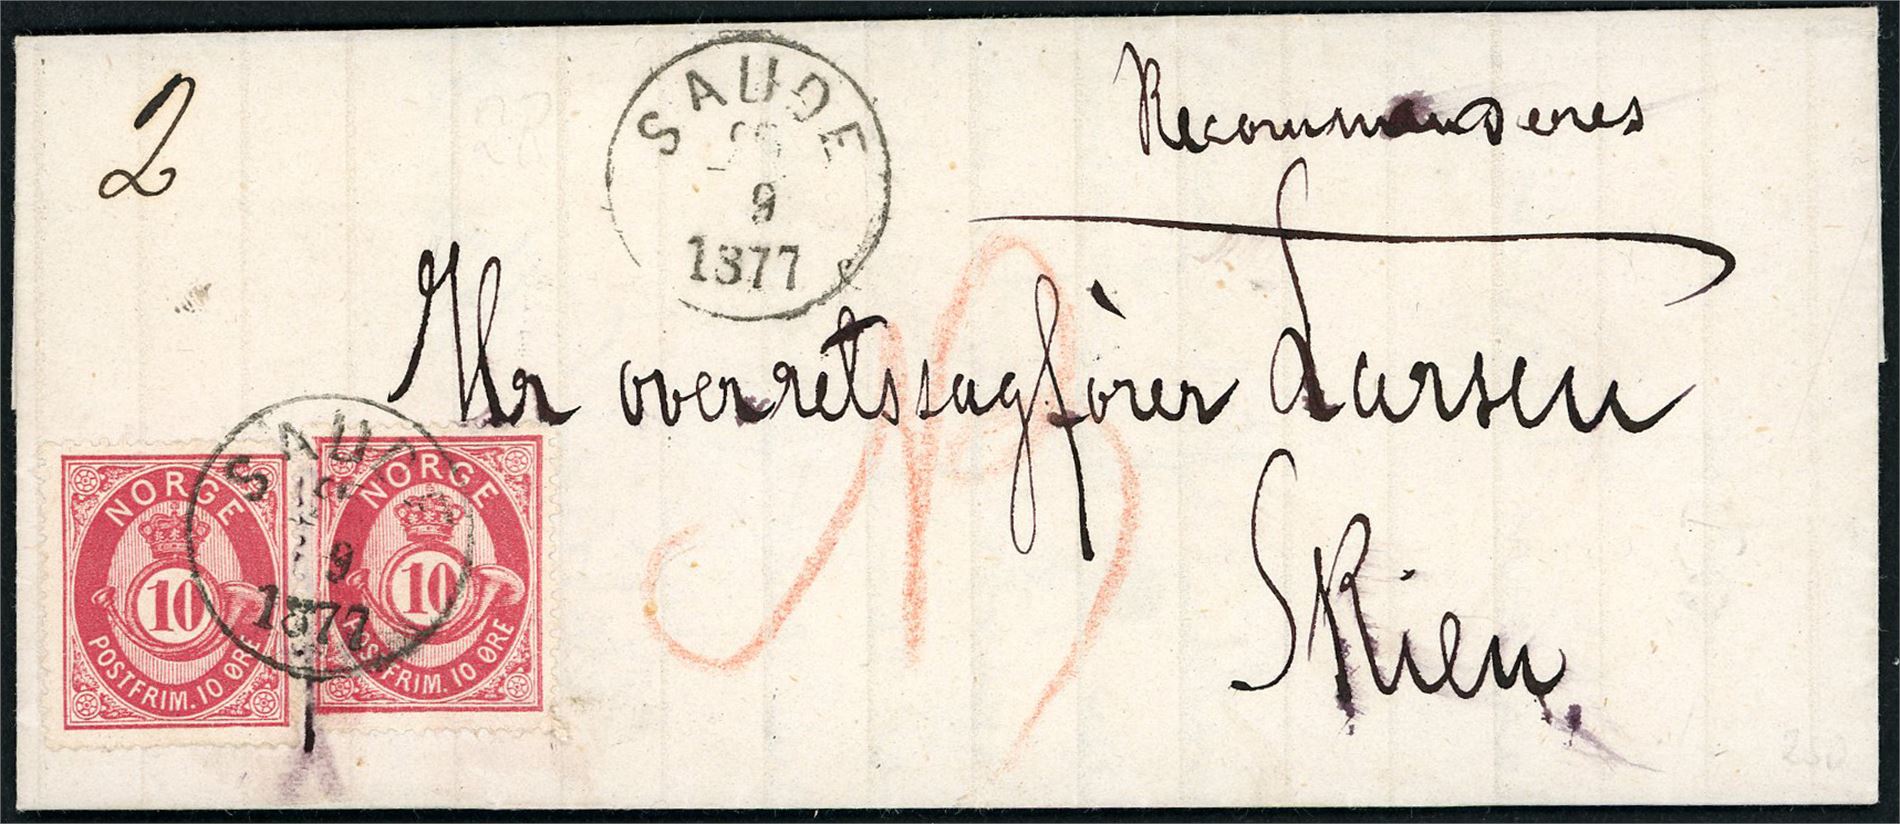 2
SAUDE
9
1877
Recommanderes
Hr overretssagfører Larsen
Skien
NORGE
10
POSTFRIM. 10 ØRE
NORGE
10
POSTFRIM. 10 ØRE
SAUDE
9
1877
250